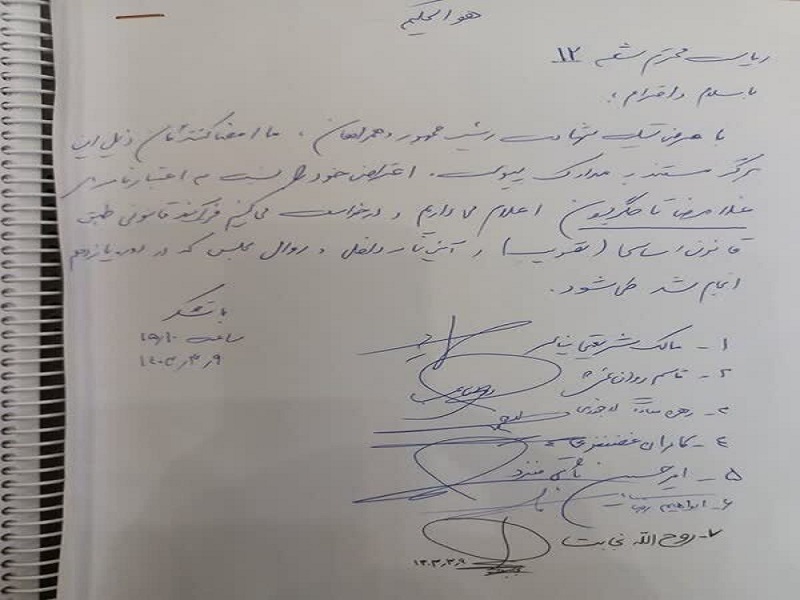 هو الحکیم
ریاست محترم شعبه ۱۲
با سلام و احترام؛
با عرض تسلیت شهادت رئیس جمهور و همراهان، ما امضا کنندگان ذیل این
برگه مستند به مدارک پیوست، اعتراض خود را نسبت به اعتبارنامه
غلامرضا تاجگردون اعلام می داریم و درخواست می کنیم فرآیند قانونی طبق
قانون اساسی ( ) و آئین نامه داخلی و روال مجلس که در دوره یازدهم
انجام شد طی شود.
با تشکر
ساعت ۱۵:۱۰
۱۴۰۳٫۳٫۹
۱- مالک شریعتی نیاسر
۲- قاسم روان‌بخش
۳- لاجوردی
۴- کامران غضنفری
۵- امیرحسین ثابتی منفرد
۶- ابراهیم
۷- روح الله نجابت
۱۴۰۳٫۳٫۹